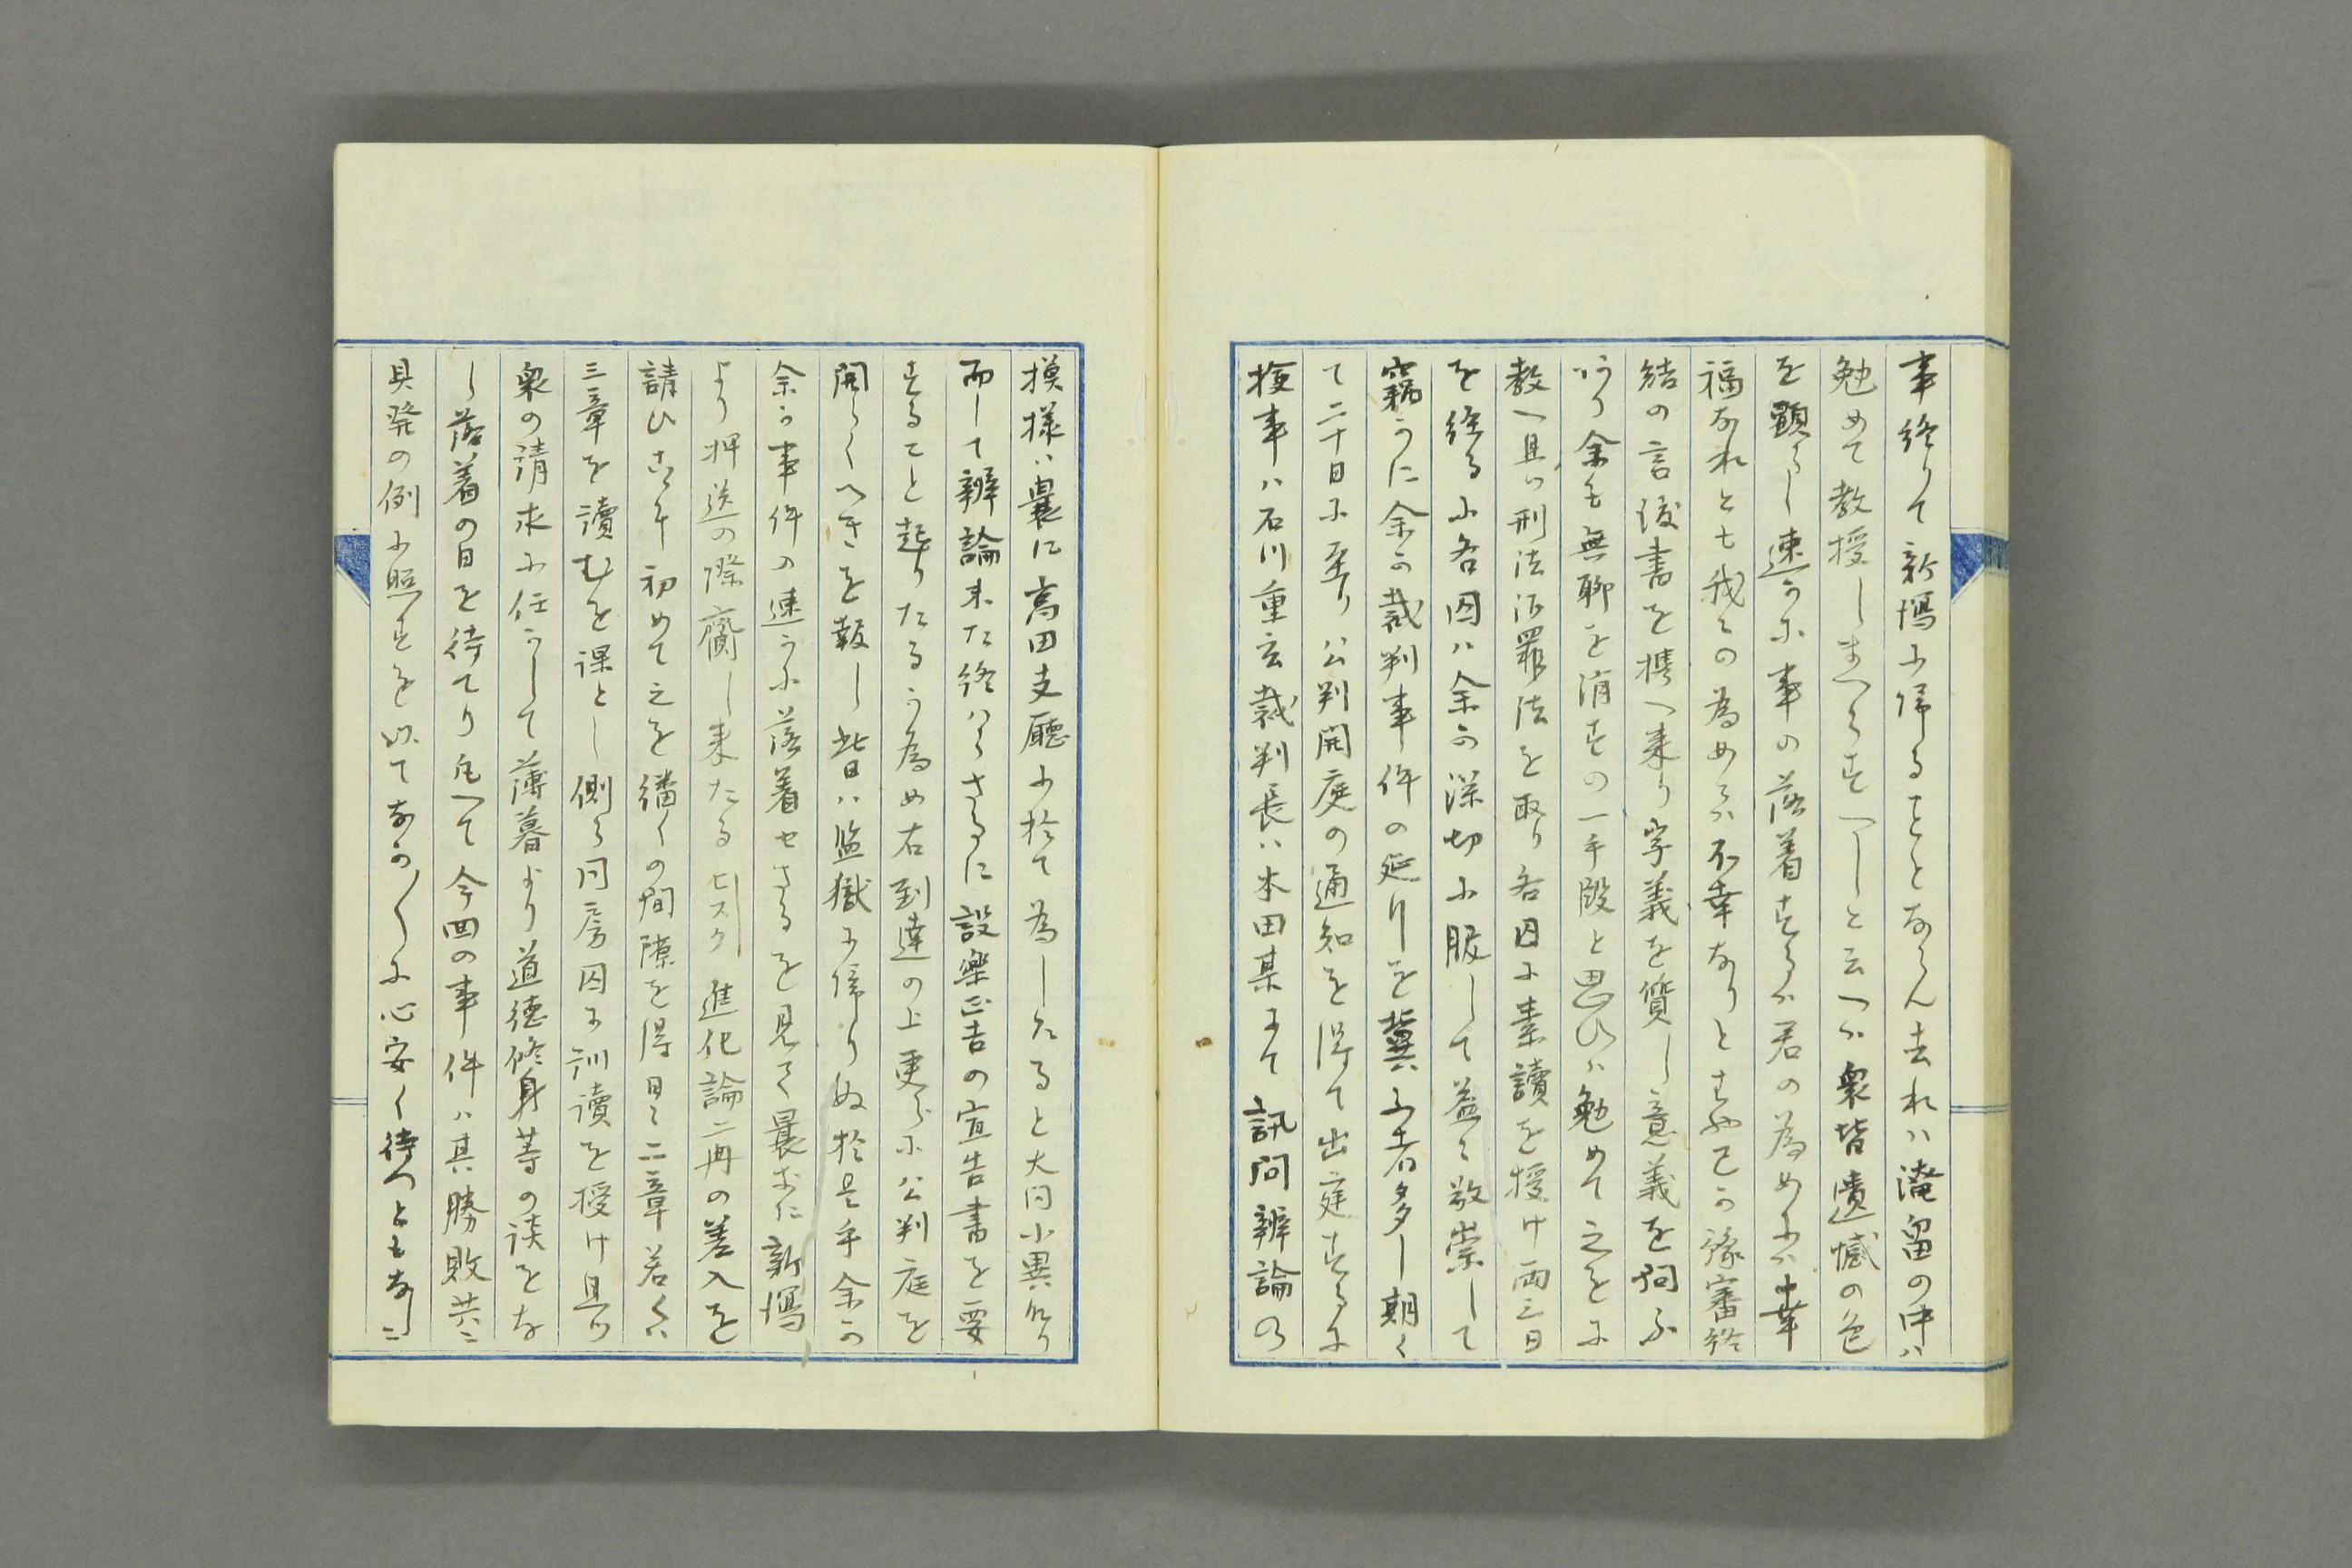 事終りて新潟に帰ることとならん去れハ淹留の中ハ
勉めて教授しまいらすへしと云へハ衆皆遺憾の色
を顕らし速かに事の落着するハ君の為めにハ幸
福なれとも我々の為めにハ不幸なりと己の豫審終
結の言渡書を携へ来り字義を質し意義を問ふ
あり余も無聊を消すの一手段と思ひハ勉めて之を
教へ且つ刑法治罪法を取り各囚に素讀を授け両三日
を経るに各囚ハ余の深切に服して益々敬崇して
窃かに余の裁判事件の延りを冀ふ者多し期く
て二十日に至り公判開庭の通知を得て出庭するに
検事ハ石川重玄裁判長ハ本田某にて訊問辨論の
摸様ハ曩に高田支廳に於て為したると大同小異なり
而して辨論未た終ハらさるに設楽正吉の宣告書を要
することと起りたるか為め右到達の上更らに公判庭を
開らくへきを報し此日ハ監獄に帰りぬ於是乎余の
余の事件の速かに落着せさるを見て曩きに新潟
より押送の際齎し来たる 進化論二冊の差入を
請ひ 初めて之を繙くの間隙を得日々二章若くハ
三章を讀むを課とし側ら同房囚に訓讀を授け且つ
衆の請求に任かして薄暮より道徳修身等の談をな
し落着の日を待てり 今回の事件ハ其勝敗共ニ
具発の例に照すを以て 心安く待つともなし